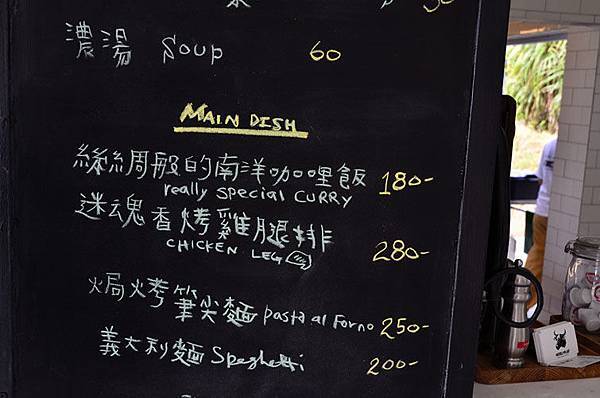 濃湯 Soup 60
MAIN DISH
綿綿周般的南洋咖哩飯 180-
really special CURRY
迷魂香烤雞腿排 280-
CHICKEN LEG
焗烤筆尖麵 pasta al Forno 250-
義大利麵 Spaghetti 200-